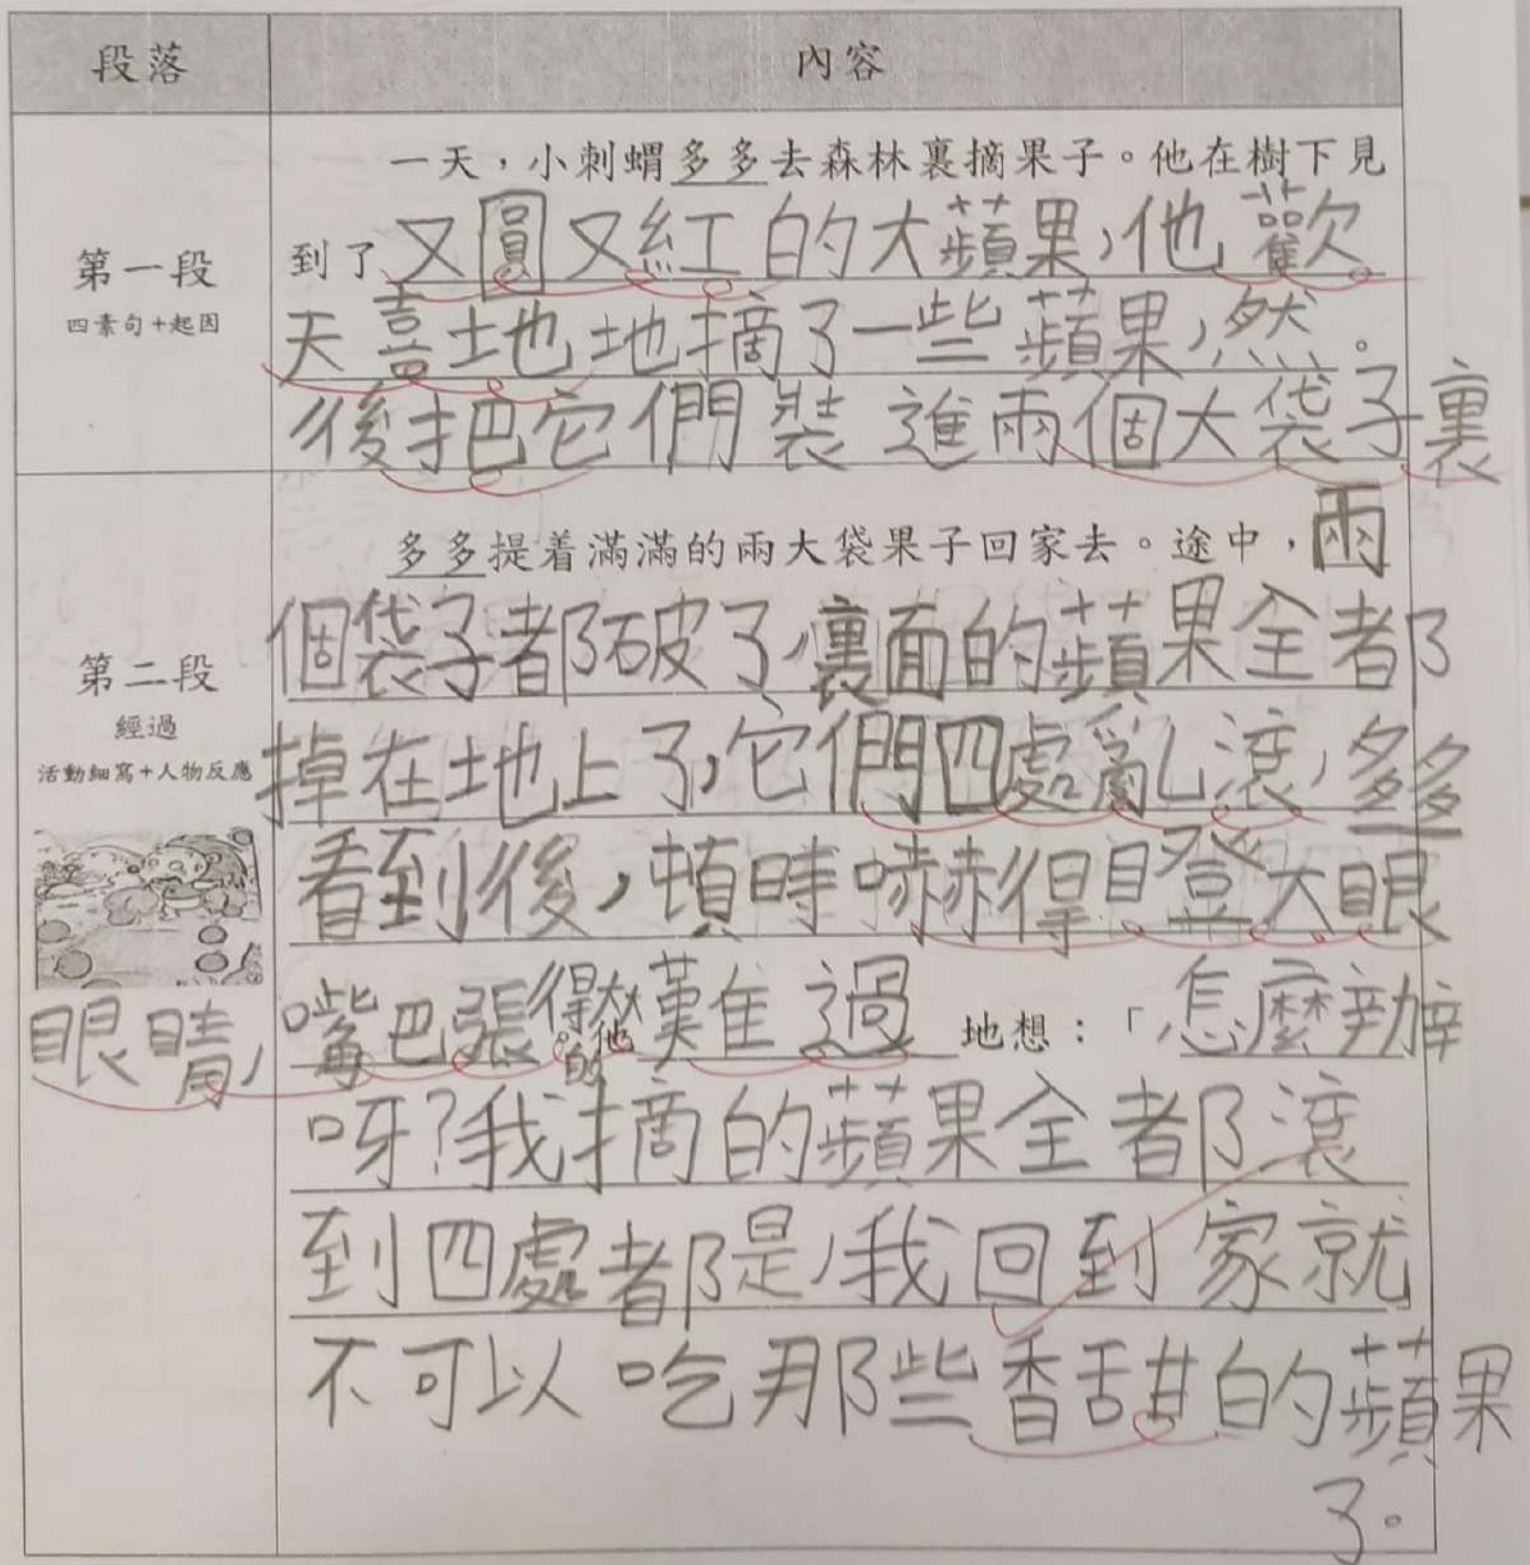 段落
內容
第一段
四素句+起因
一天，小刺蝟多多去森林裏摘果子。他在樹下見
到了又圓又紅的大蘋果，他歡
天喜地地摘了一些蘋果，然
後把它們裝進兩個大袋子裏。
第二段
經過
活動細寫+人物反應
多多提着滿滿的兩大袋果子回家去。途中，兩
個袋子都破了，裏面的蘋果全都
掉在地上了，它們四處亂滾，多多
看到後，頓時嚇得目登大眼
眼睛，嘴巴張得大大的，他難過地想：「怎麼辦
呀？我摘的蘋果全都滾
到四處都是，我回到家就
不可以吃那些香甜的蘋果
了。